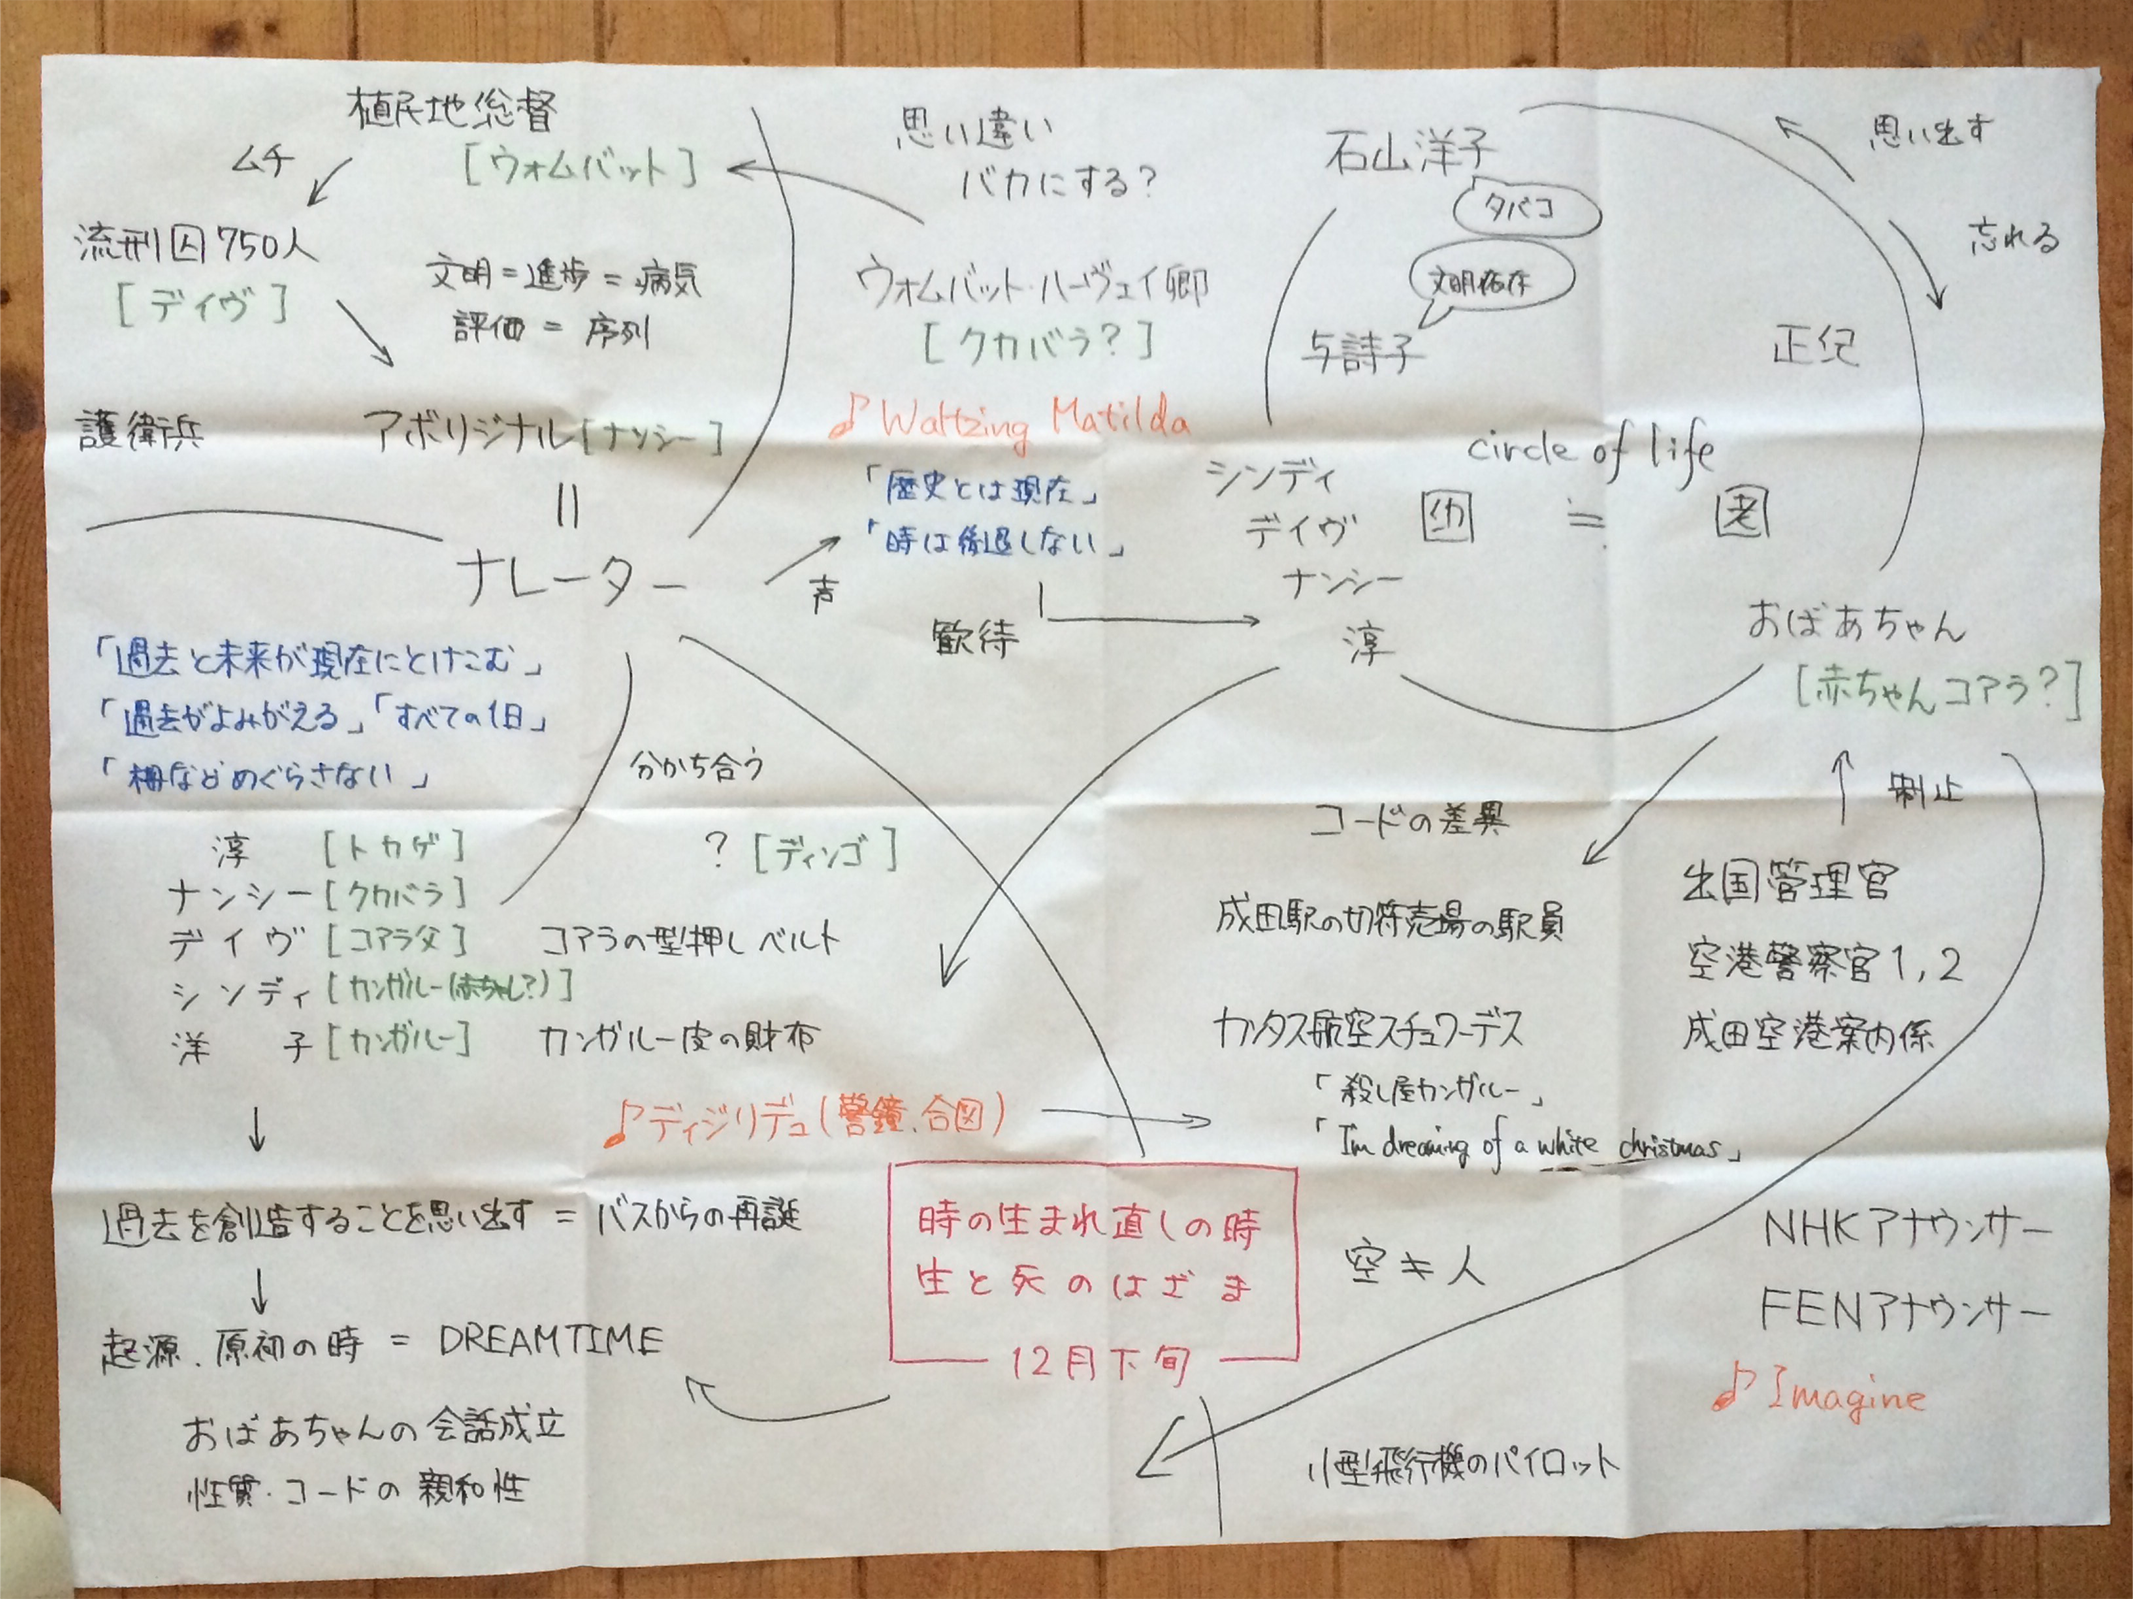 植民地総督
ムチ
[ウォムバット]
流刑囚750人
[デイヴ]
文明=進歩=病気
評価 = 序列
護衛兵
アボリジナル[ナンシー]
=
ナレーター
思い違い
バカにする?
ウォムバット・ハーヴェイ卿
[クカバラ?]
♪Waltzing Matilda
「歴史とは現在」
「時は後退しない」
声
歓待
石山洋子
タバコ
文明依存
与詩子
思い出す
忘れる
正紀
circle of life
シンディ
デイヴ
ナンシー
淳
幼 ≒ 老
おばあちゃん
[赤ちゃんコアラ?]
「過去と未来が現在にとけこむ」
「過去がよみがえる」「すべての1日」
「柵などめぐらさない」
分かち合う
淳 [トカゲ]
? [ディンゴ]
ナンシー[クカバラ]
デイヴ[コアラ父] コアラの型押しベルト
シンディ[カンガルー(赤ちゃん?)]
洋子[カンガルー] カンガルー皮の財布
制止
コードの差異
出国管理官
成田駅の切符売場の駅員
空港警察官1,2
カンタス航空スチュワーデス
成田空港案内係
「殺し屋カンガルー」
「I'm dreaming of a white christmas」
♪ディジリデュ(警鐘、合図)
過去を創造することを思い出す = バスからの再誕
時の生まれ直しの時
生と死のはざま
12月下旬
空キ人
NHKアナウンサー
FENアナウンサー
♪Imagine
起源、原初の時 = DREAMTIME
おばあちゃんの会話成立
性質・コードの親和性
小型飛行機のパイロット